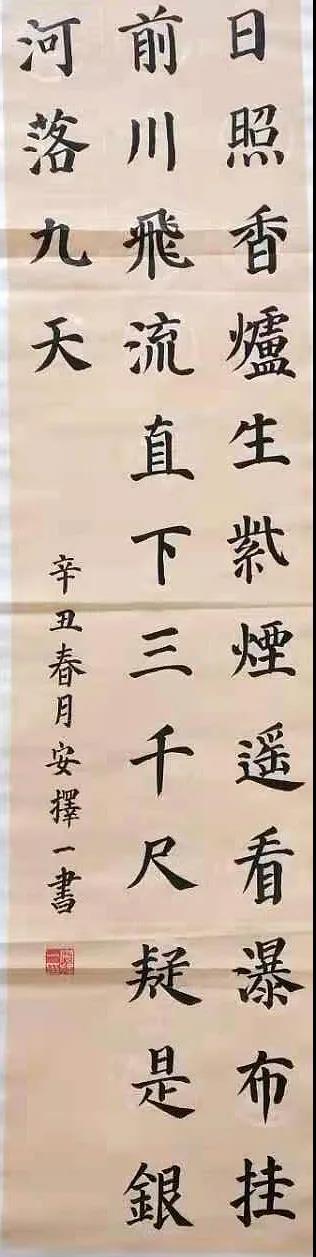 日照香爐生紫煙遥看瀑布挂
前川飛流直下三千尺疑是銀
河落九天
辛丑春月安擇一書